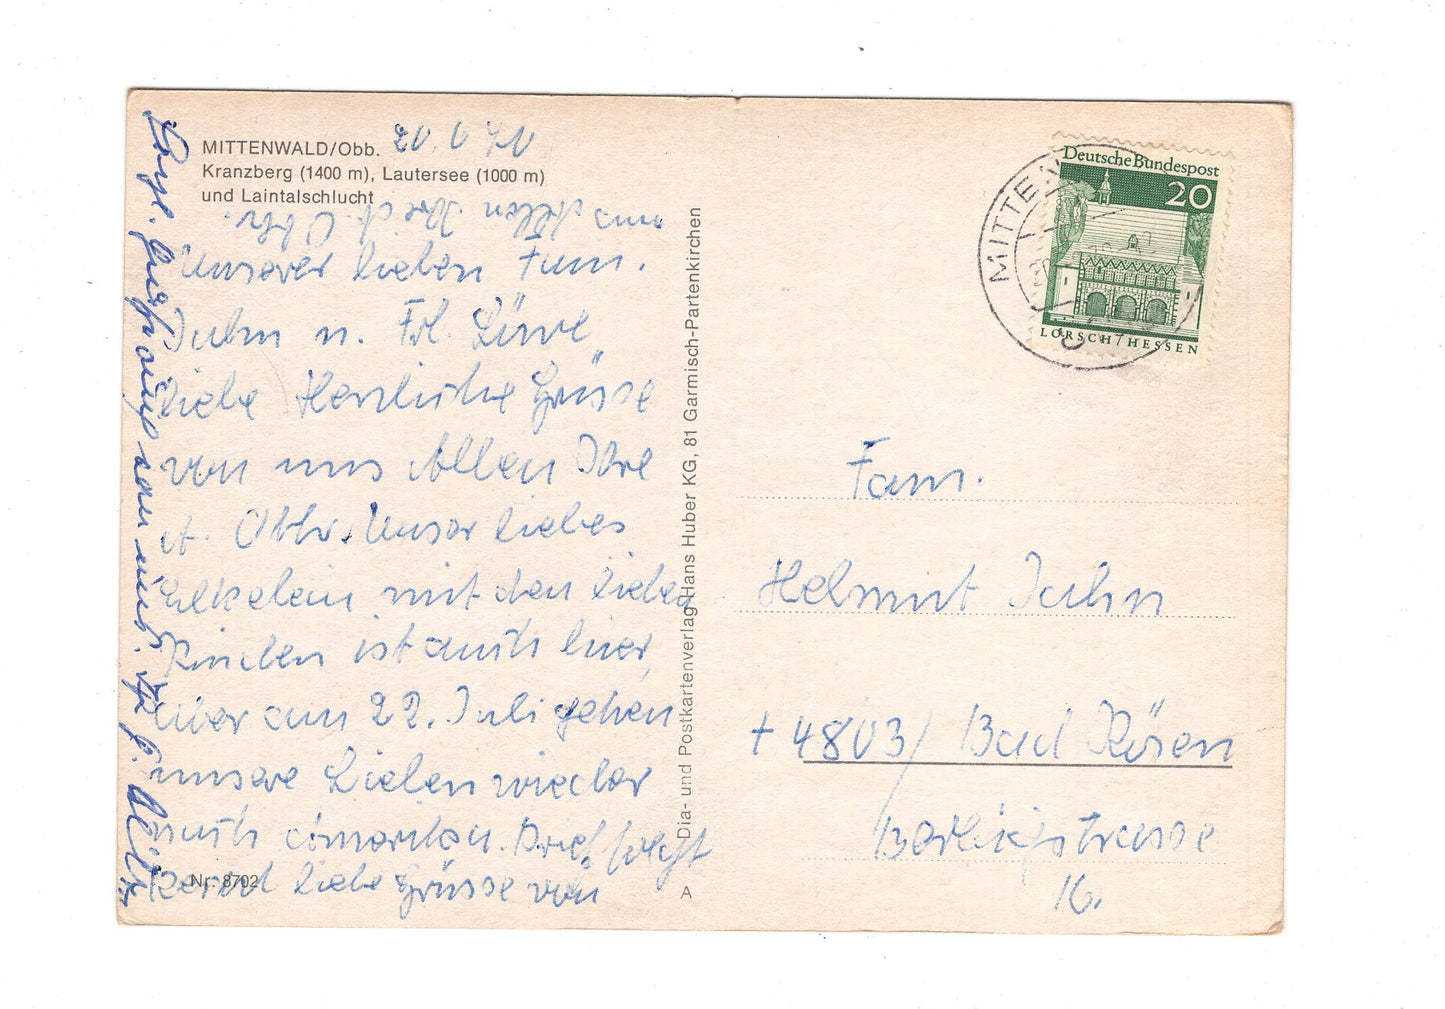 MITTENWALD/Obb.
Kranzberg (1400 m), Lautersee (1000 m)
und Laintalschlucht
20. 6 70
Unserer lieben Fam.
Jahn u. Frl. Löwe
liebe Herzliche Grüsse
von uns Allen Ihre
Unser liebes
mit den lieben
Kindern ist auch hier,
aber am 22. Juli gehen
unsere Lieben wieder
nach Amerika. Brief folgt
liebe Grüsse von
uns Allen Ihre
Nr. 8702
Dia- und Postkartenverlag Hans Huber KG, 81 Garmisch-Partenkirchen
A
Deutsche Bundespost
20
LORSCH/HESSEN
MITTE
Fam.
Helmut Jahn
4803/ Bad Kösen
16.